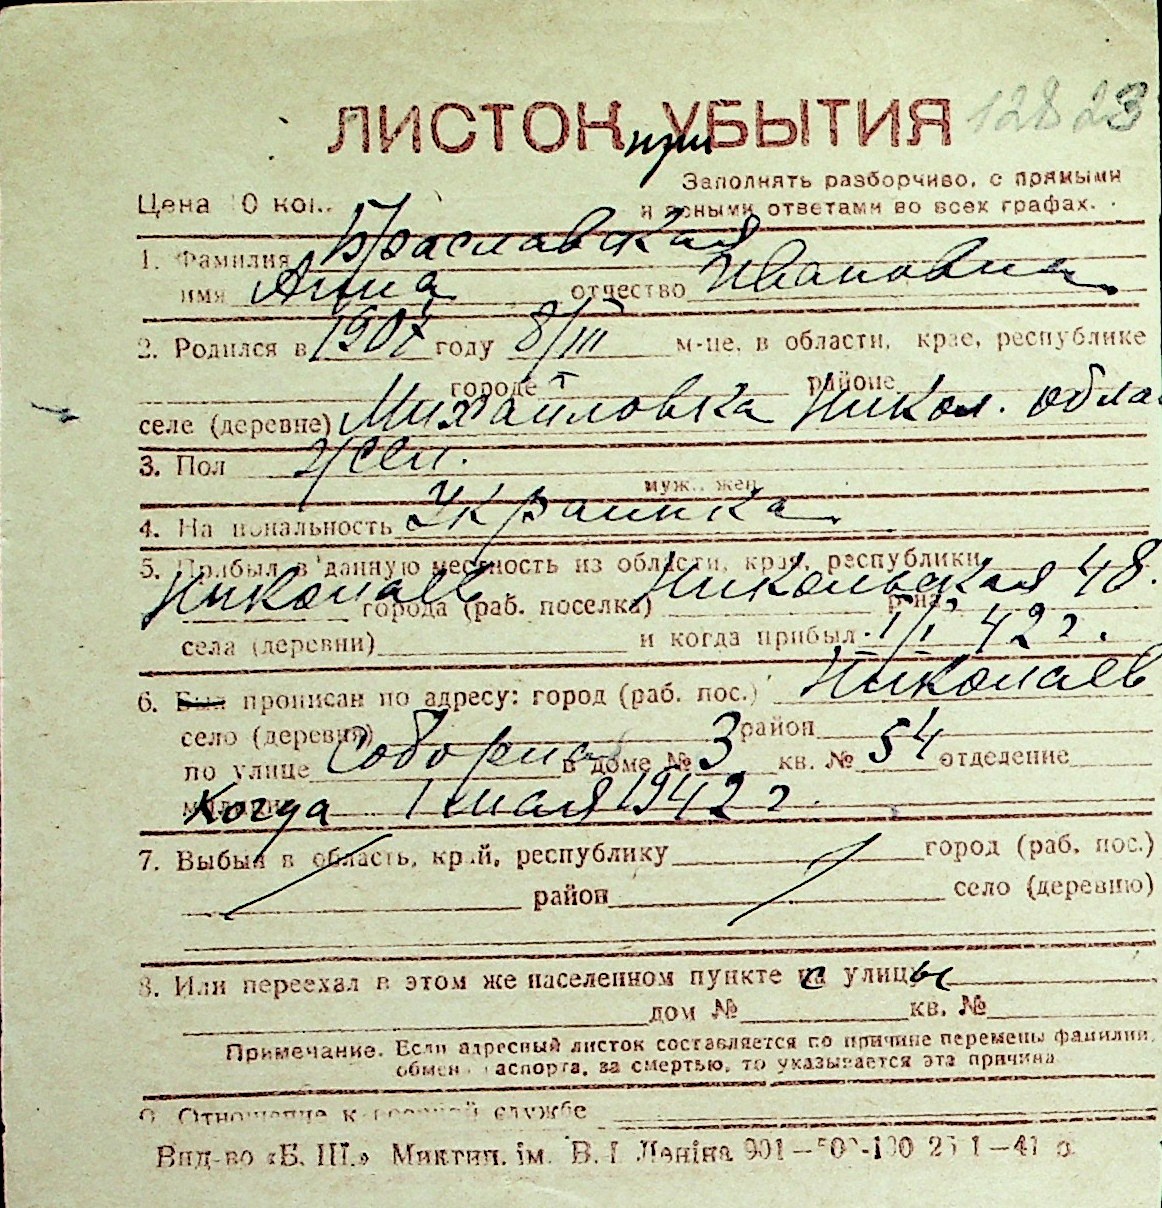 12823
ЛИСТОК при УБЫТИЯ
Заполнять разборчиво, с прямыми
Цена 10 коп. и ясными ответами во всех графах.
1. Фамилия Браславская
имя Анна отчество Ивановна
2. Родился в 1907 году 8/III м-це, в области, крае, республике
городе районе
селе (деревне) Михайловка Никол. обла
3. Пол жен.
муж., жен.
4. Национальность Украинка
5. Прибыл в данную местность из области, края, республики
Николаев города (раб. поселка) Никольская 48. р-на
села (деревни) и когда прибыл 1/I 42 г.
6. Был прописан по адресу: город (раб. пос.) Николаев
село (деревня) район
по улице Соборна в доме № 3 кв. № 54 отделение
Когда 1 мая 1942 г.
7. Выбыл в область, край, республику город (раб. пос.)
район село (деревню)
8. Или переехал в этом же населенном пункте с улицы
дом № кв. №
Примечание. Если адресный листок составляется по причине перемены фамилии,
обмена паспорта, за смертью, то указывается эта причина
9. Отношение к военной службе
Вид-во «Б. Ш.» Миктип. ім. В. І Леніна 901—500-100 25 1—41 р.